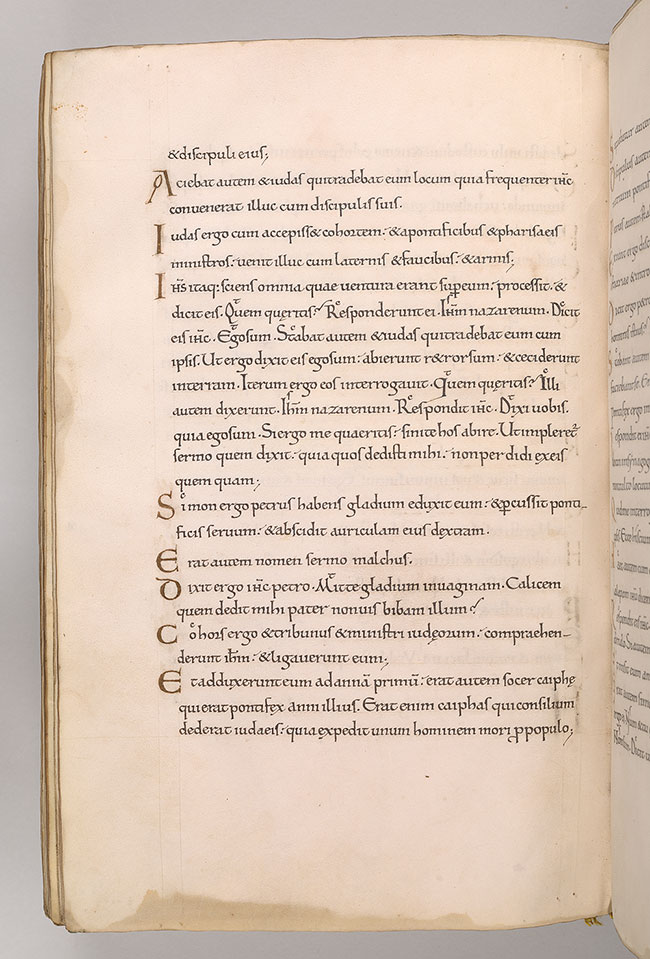 & discipuli eius;
Aciebat autem & iudas qui tradebat eum locum quia frequenter ihc
convenerat illuc cum discipulis suis.
Iudas ergo cum accepiss& cohortem: & a pontificibus & pharisaeis
ministros: uenit illuc cum laternis & facibus: & armis;
Ihs itaq: sciens omnia quae uentura erant super eum: processit. &
dicit eis. Quem queritis? Responderunt ei. Ihm nazarenum. Dicit
eis ihc. Ego sum. Stabat autem & iudas qui tradebat eum cum
ipsis. Ut ergo dixit eis ego sum: abierunt r&rorsum: & ceciderunt
in terram. Iterum ergo eos interrogauit. Quem queritis? Illi
autem dixerunt. Ihm nazarenum. Respondit ihc. Dixi uobis.
quia ego sum. Si ergo me quaeritis: sinite hos abire. Ut impler&
sermo quem dixit: quia quos dedisti mihi: non perdidi ex eis
quem quam;
Simon ergo petrus habens gladium eduxit eum: & percussit ponti-
ficis seruum: & abscidit auriculam eius dextram.
Erat autem nomen seruo malchus.
Dixit ergo ihc petro. Mitte gladium in uaginam. Calicem
quem dedit mihi pater non uis bibam illum?
Cohors ergo & tribunus & ministri iudeorum: compraehen-
derunt ihm: & ligauerunt eum;
Et adduxerunt eum ad annā primū: erat autem socer caiphę
qui erat pontifex anni illius. Erat enim caiphas qui consilium
dederat iudaeis: quia expedit unum hominem mori p populo;